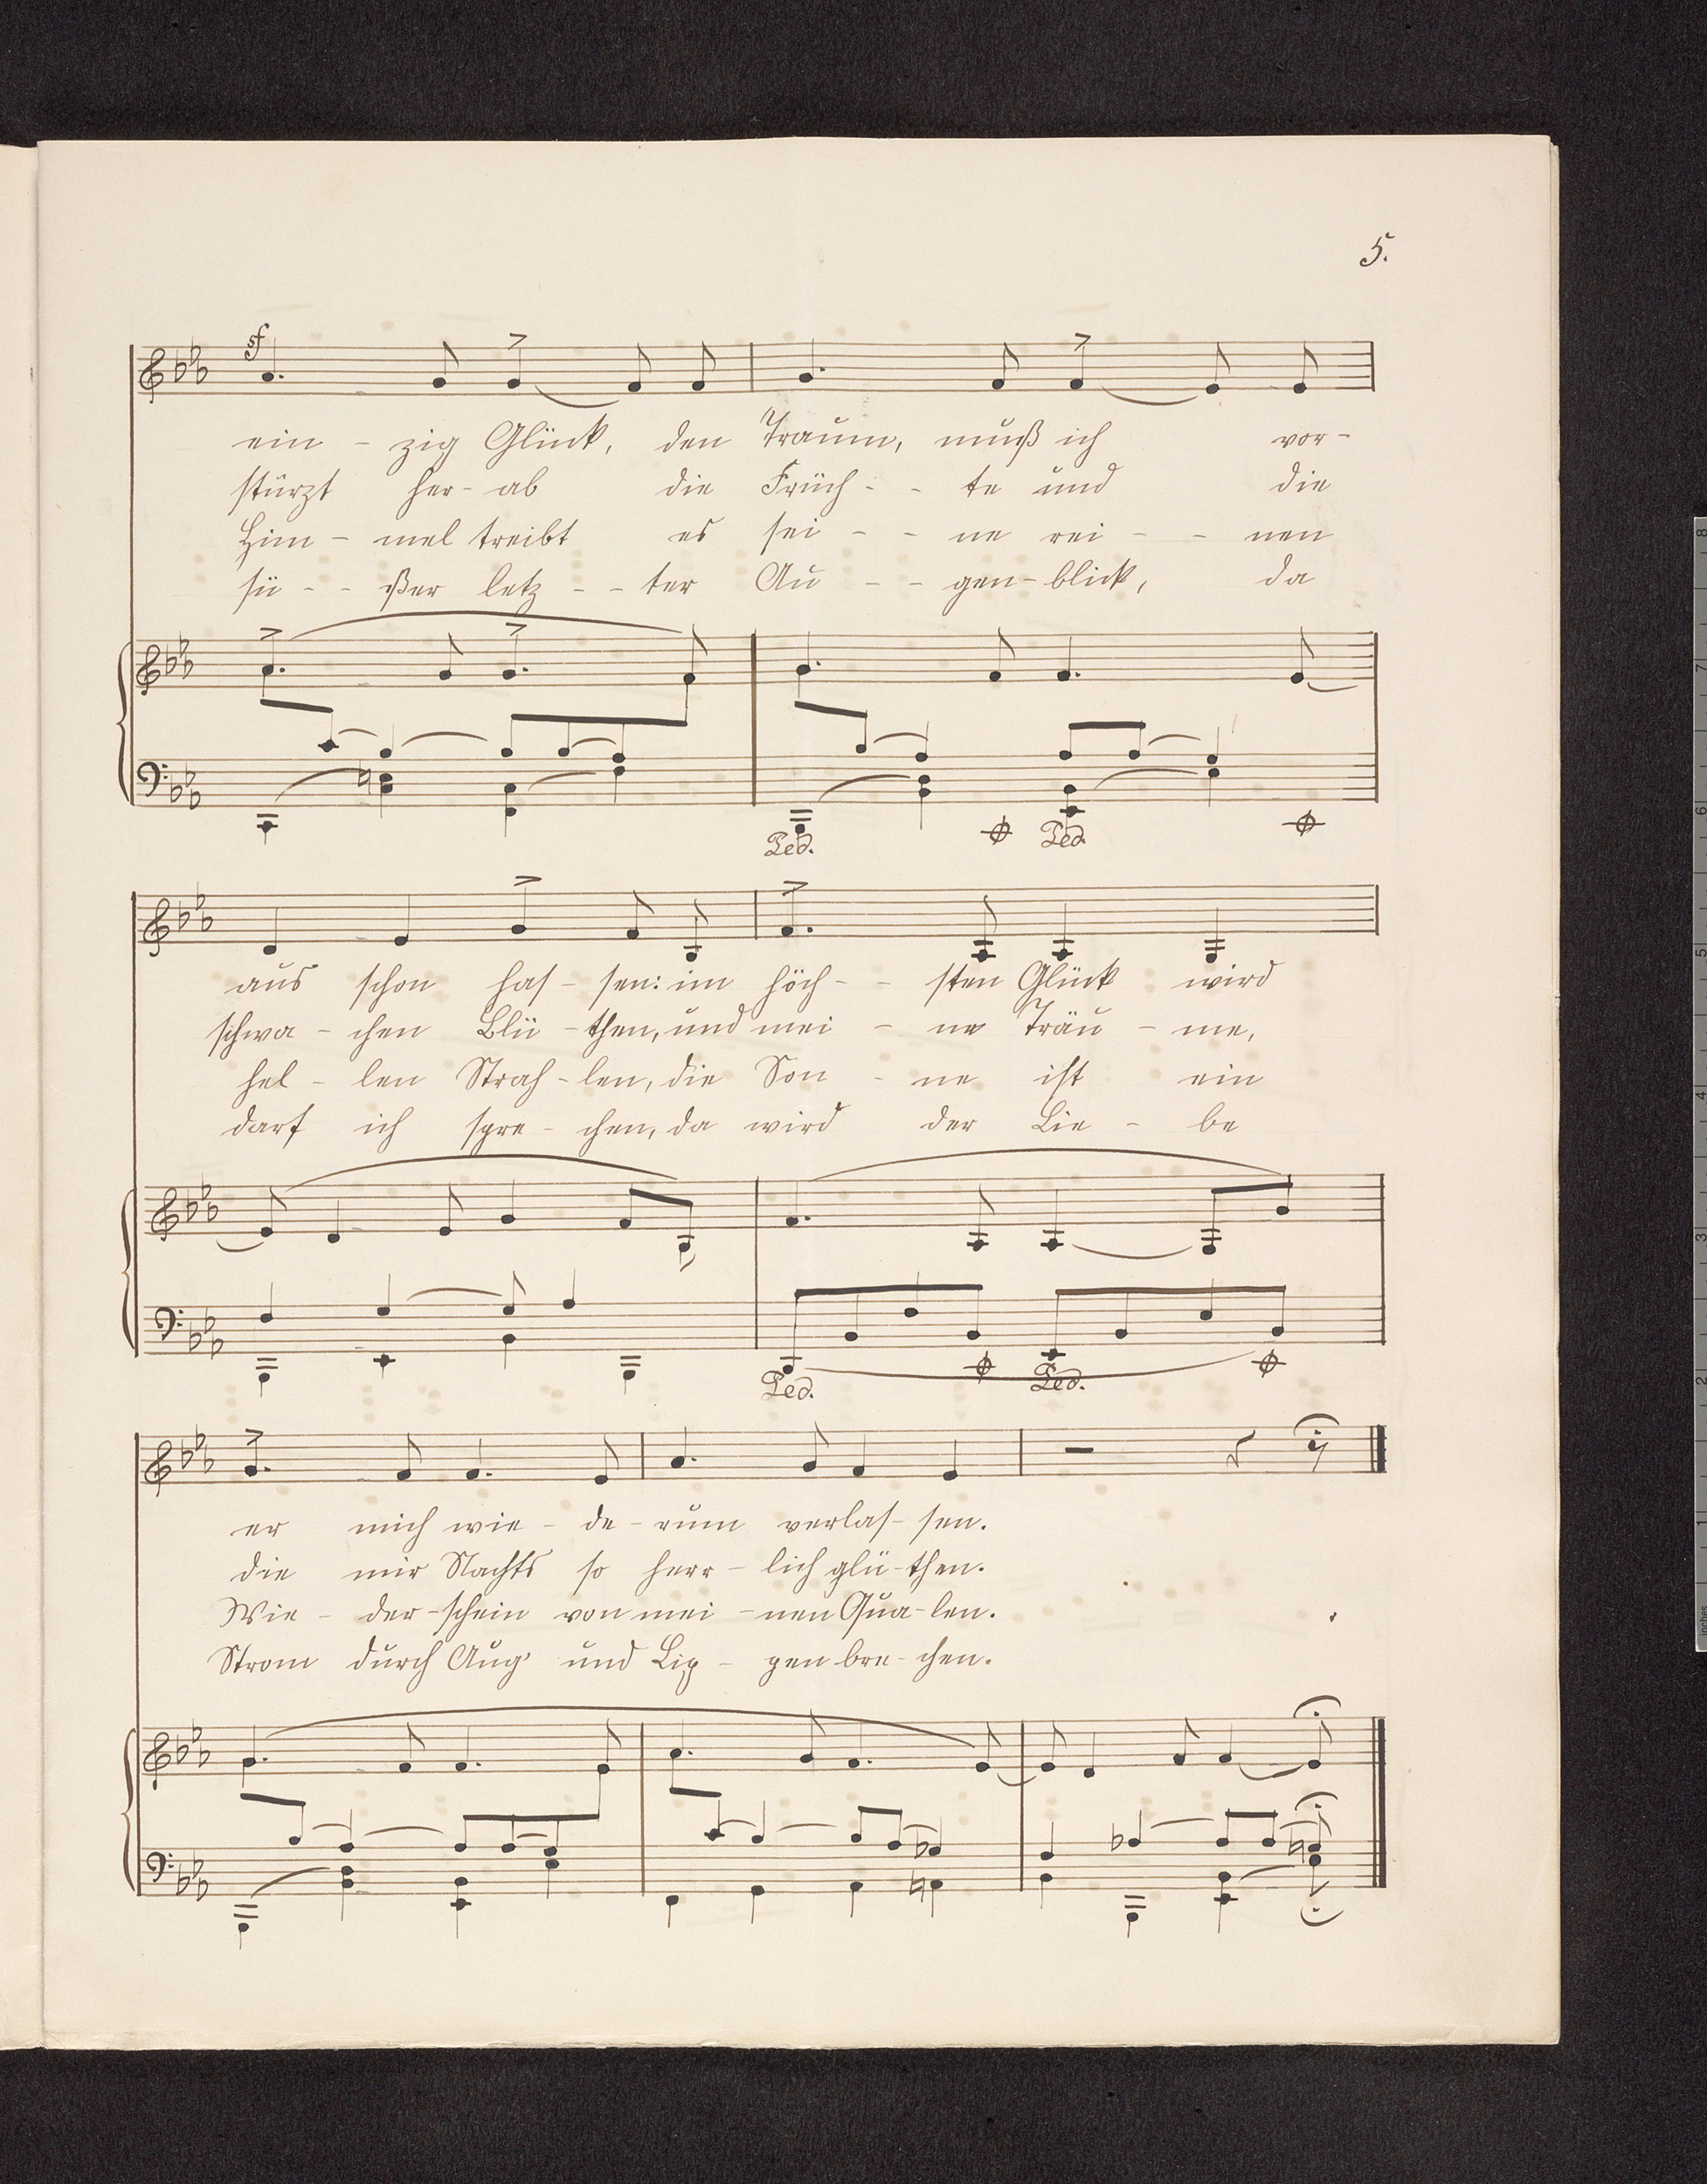 5.
sf
ein - zig Glück, den Traum, muß ich vor-
stürzt her- ab die Früch - - te und die
Him - mel treibt es sei - - ne rei - - nen
sü - - ßer letz - - ter Au - - gen- blick, da
Ped. Ped.
aus schon has - sen: im höch - - sten Glück wird
schwa - chen Blü - then, und mei - ne Träu - me,
hel - len Strah - len, die Son - ne ist ein
darf ich spre - chen, da wird der Lie - be
Ped. Ped.
er mich wie - de - rum verlas- sen.
die mir Nachts so herr - lich glü- then.
Wie - der - schein von mei - nen Qua- len.
Strom durch Aug' und Lip - pen bre- chen.
8
7
6
5
4
3
2
1
inches